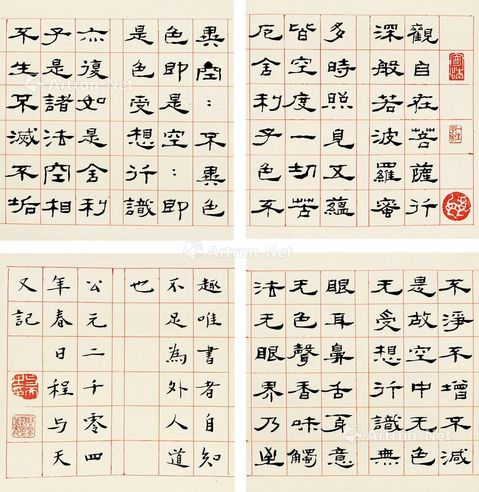 觀自在菩薩行
深般若波羅蜜
多時照見五蘊
皆空度一切苦
厄舍利子色不
異空：不異色
色即是空：即
是色受想行識
亦復如是舍利
子是諸法空相
不生不滅不垢
不淨不增不減
是故空中无色
无受想行識無
眼耳鼻舌身意
无色聲香味觸
法无眼界乃至
趣唯書者自知
不足為外人道
也
公元二千零四
年春日程与天
又記
Artron.Net
Artron.Net